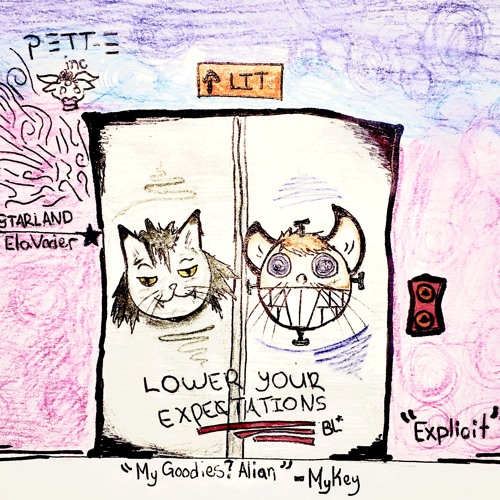 PETT-E
inc
LIT
STARLAND
ElaVader
LOWER YOUR
EXPECTATIONS
BL*
"Explicit"
"My Goodies? Alian" - MyKey